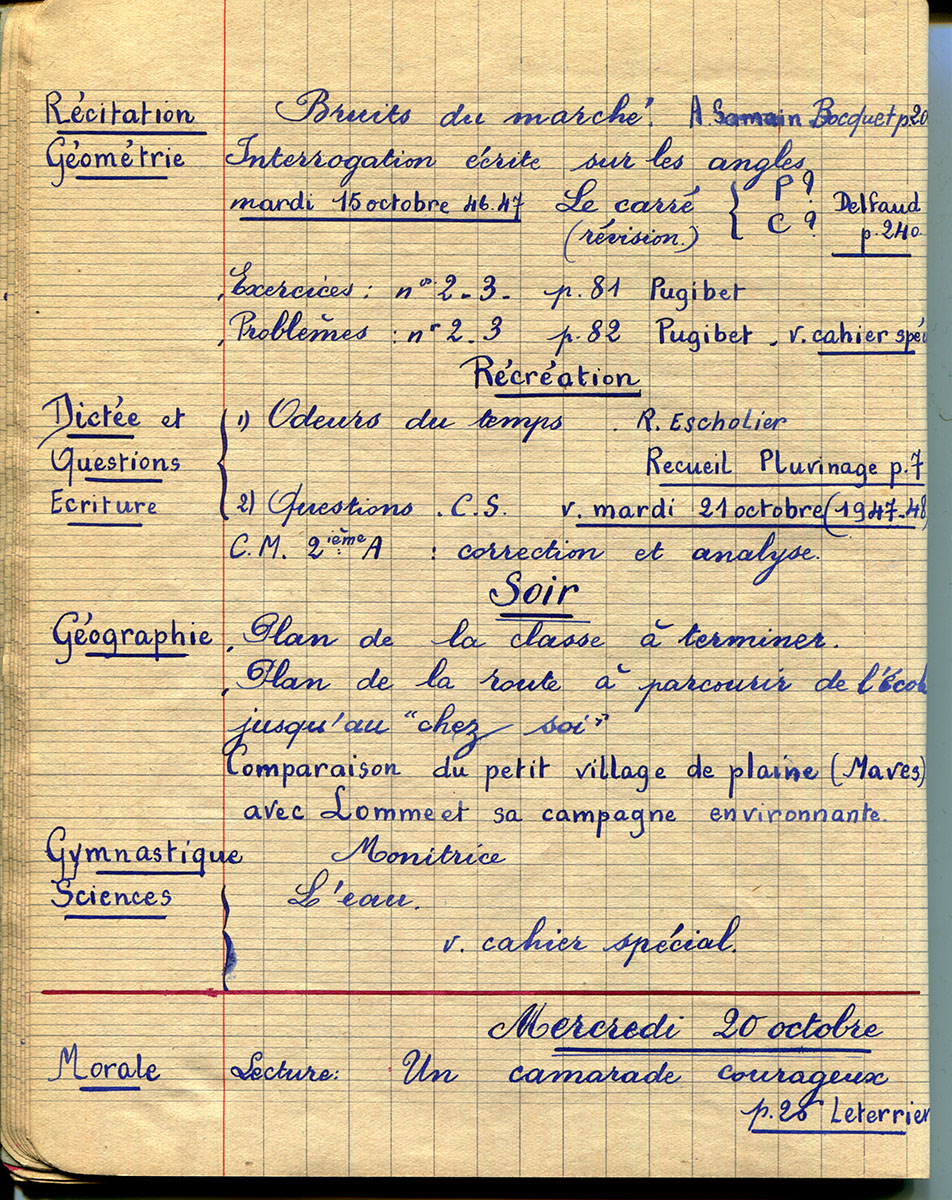 Récitation Bruits du marché. A. Samain Bocquet p20
Géométrie Interrogation écrite sur les angles
mardi 15 octobre 46.47 Le carré { P ? Delfaud
(révision.) C ? p.240
Exercices : n° 2-3- p.81 Pugibet
Problèmes : n° 2-3 p.82 Pugibet - v. cahier spéc
Récréation
Dictée et 1) Odeurs du temps . R. Escholier
Questions Recueil Pluvinage p.7
Ecriture 2) Questions . C.S. v. mardi 21 octobre (1947-48
C.M. 2ième A : correction et analyse.
Soir
Géographie . Plan de la classe à terminer.
. Plan de la route à parcourir de l'École
jusqu'au "chez soi"
Comparaison du petit village de plaine (Maves)
avec Lomme et sa campagne environnante.
Gymnastique Monitrice
Sciences L'eau.
v. cahier spécial.
Mercredi 20 octobre
Morale Lecture: Un camarade courageux
p.26 Leterrier